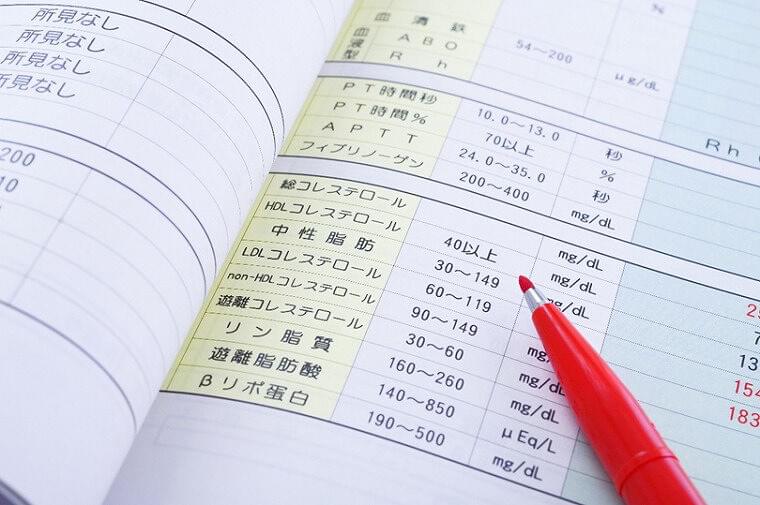 所見なし
所見なし
所見なし
所見なし
200
10
0
%
血清鉄 54～200 μg/dL
血液型 ABO
Rh Rh
PT時間秒 10.0～13.0 秒
PT時間% 70以上 %
APTT 24.0～35.0 秒
フィブリノーゲン 200～400 mg/dL
総コレステロール mg/dL
HDLコレステロール 40以上 mg/dL
中性脂肪 30～149 mg/dL
LDLコレステロール 60～119
non-HDLコレステロール 90～149
遊離コレステロール 30～60 mg/dL
リン脂質 160～260 mg/dL
遊離脂肪酸 140～850 μEq/L
βリポ蛋白 190～500 mg/dL
25
7
13
154
183